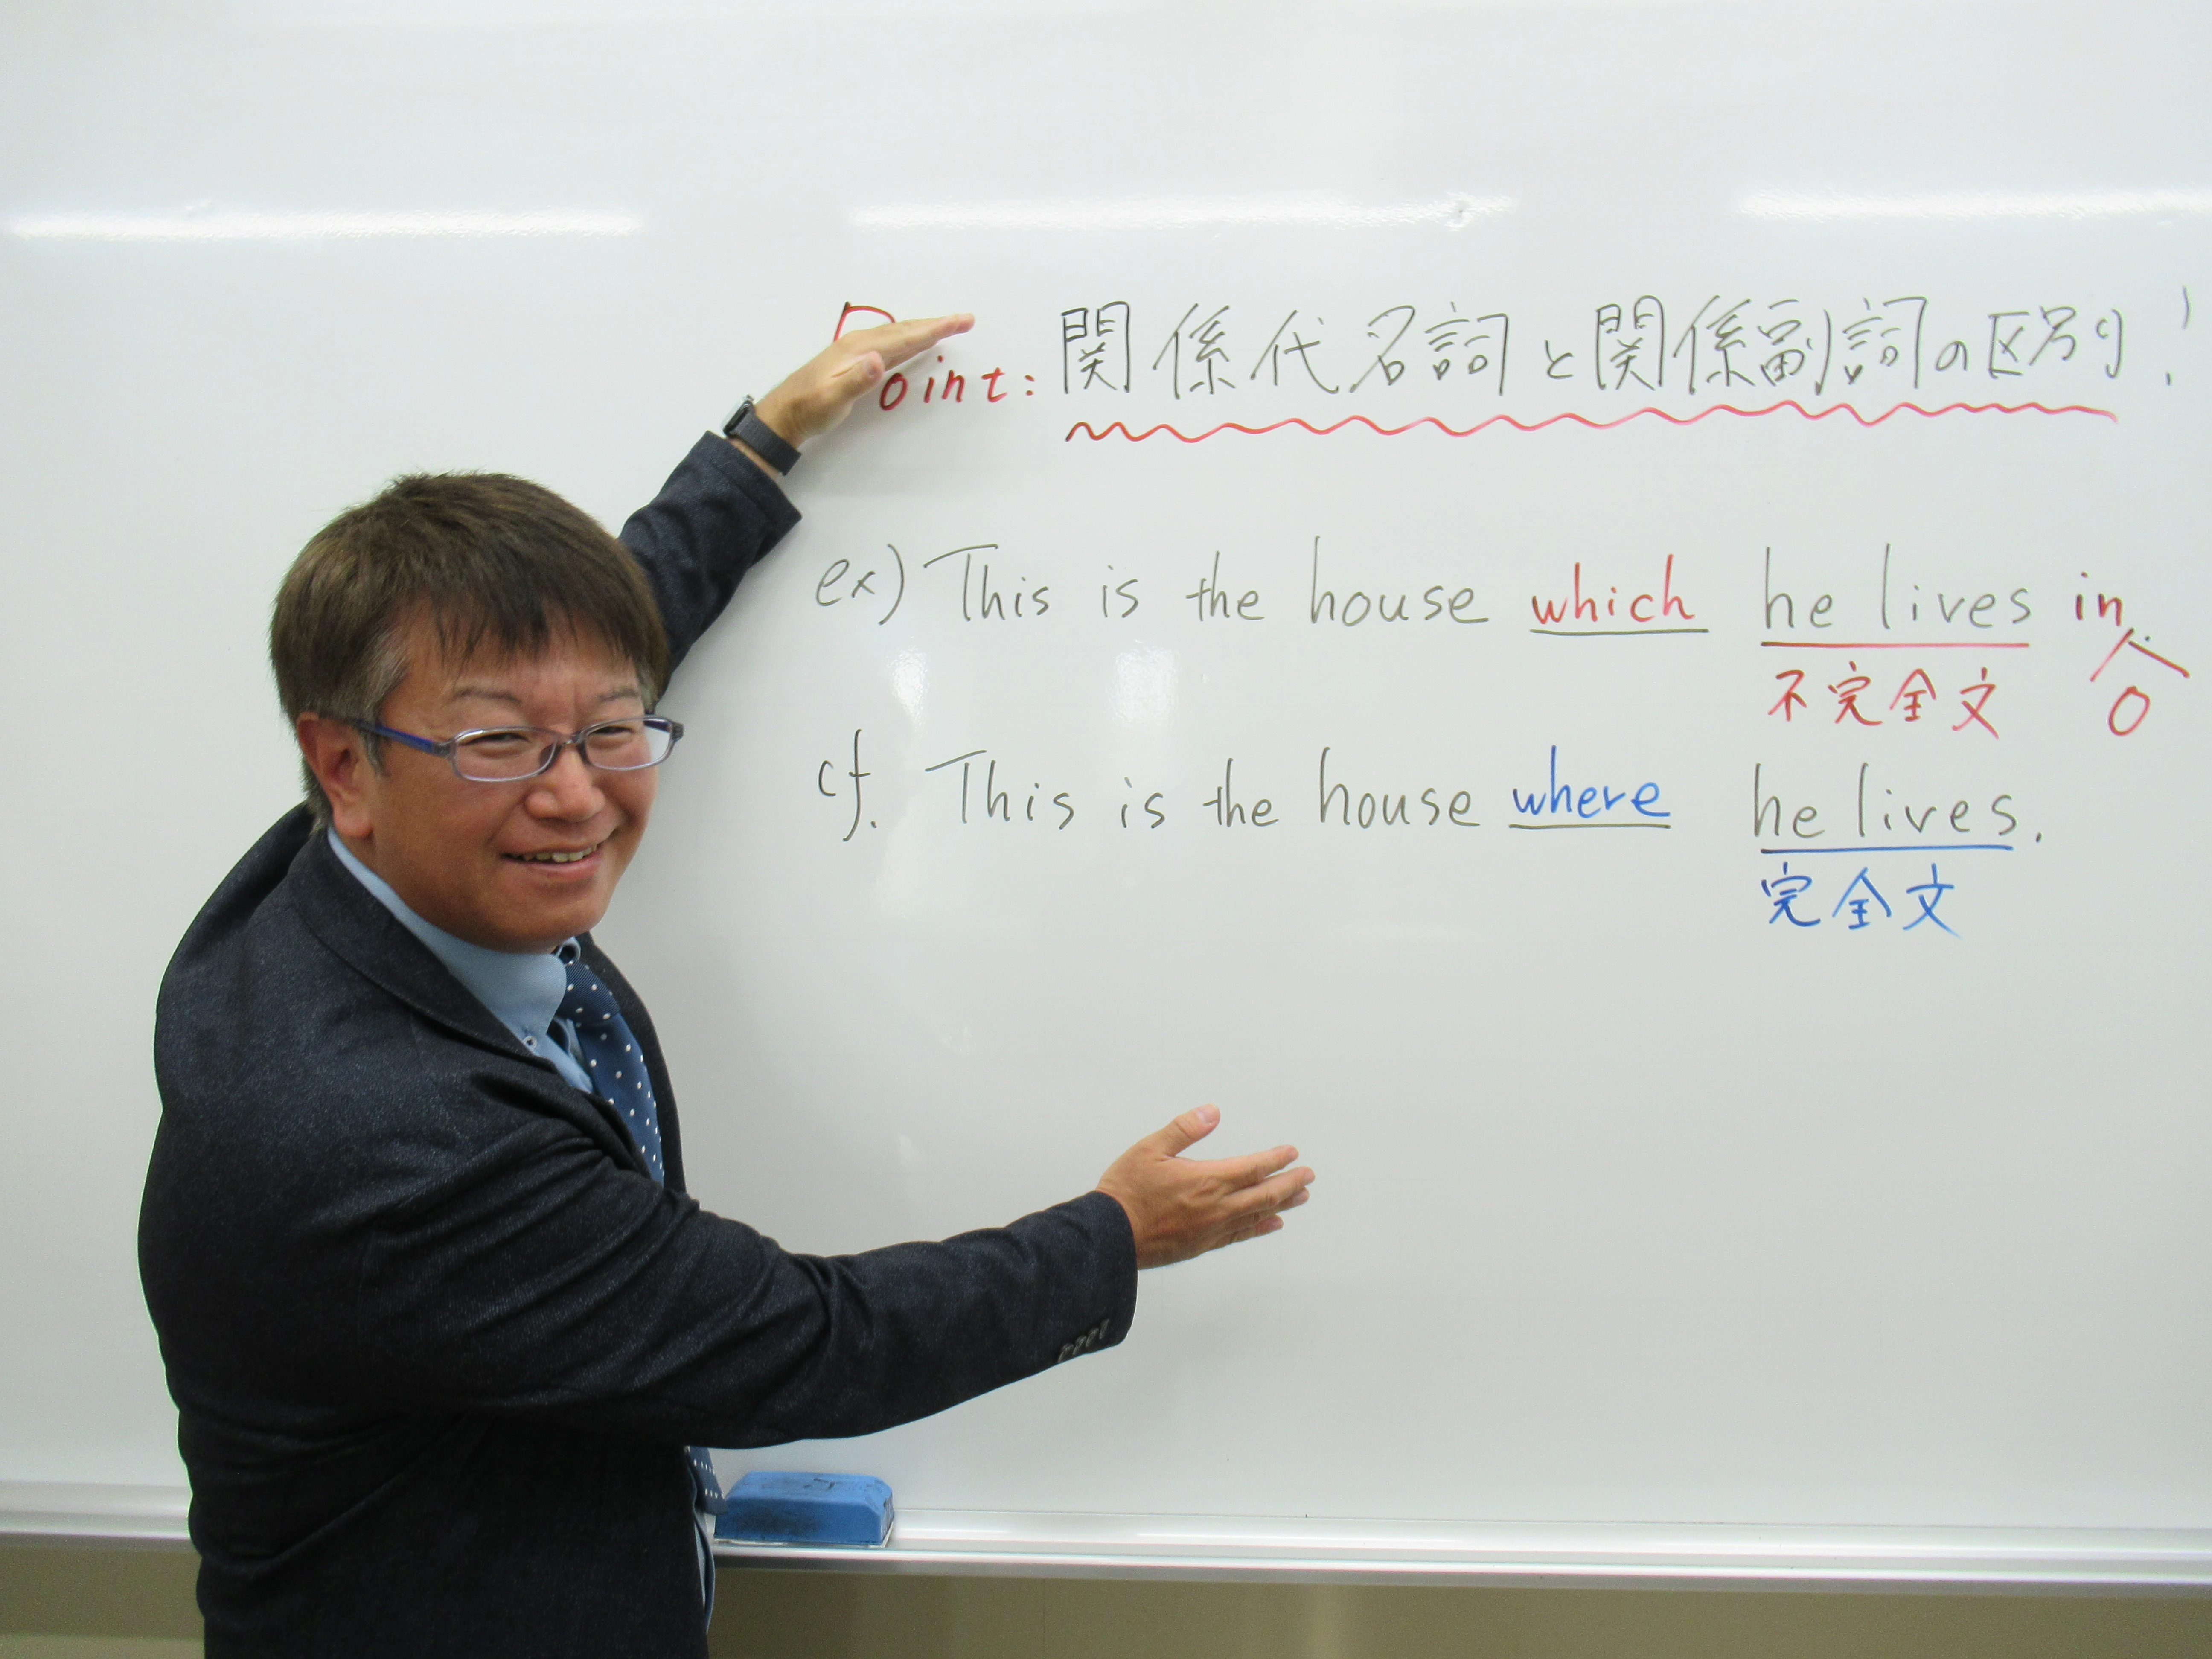 Point: 関係代名詞と関係副詞の区別!
ex) This is the house which he lives in.
不完全文 0
cf. This is the house where he lives.
完全文